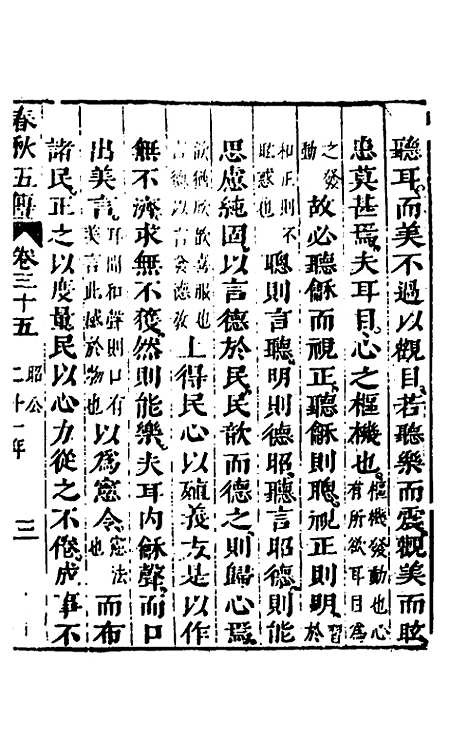 聽耳而美不過以觀目若聽樂而震觀美而眩
患莫甚焉夫耳目心之樞機也樞機發動也心有所欲耳目為
之發動故必聽龢而視正聽龢則聰視正則明習於
和正則不眩惑也聰則言聽明則德昭聽言昭德則能
思慮純固以言德於民民歆而德之則歸心焉
歆猶欣欣喜服也言德以言發德教上得民心以殖義方是以作
無不濟求無不獲然則能樂夫耳內龢聲而口
出美言耳聞和聲則口有美言此感於物也以為憲令憲法也而布
諸民正之以度量民以心力從之不倦成事不
春秋五傳 卷三十五 昭公二十一年 三